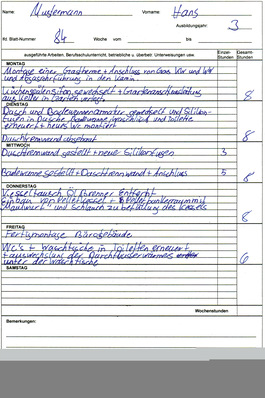 Name: Mustermann Vorname: Hans
Ausbildungsjahr: 3
lfd. Blatt-Nummer 84 Woche vom bis
ausgeführte Arbeiten, Berufsschulunterricht, betriebliche u. überbetr. Unterweisungen usw. Einzel-Stunden Gesamt-Stunden
MONTAG
Montage einer Gastherme + Anschluss von Gas VW und
und Abgasrohrführung in den Kamin.
Küchenspülensifon gewechselt + Gartenanschlussleitung
aus Keller in Garten verlegt 8
DIENSTAG
Dusch und Badewannenarmatur gewechselt und Silikon-
fugen in Dusche, Badewanne, Waschtisch und Toilette
erneuert + neues WC montiert
Duschtrennwand abgebaut 8
MITTWOCH
Duschtrennwand gestellt + neue Silikonfugen 3
Badewanne gestellt + Duschtrennwand + Anschluss 5 8
DONNERSTAG
Kesseltausch Ölbrenner entfernt
Einbau von Pelletkessel + Pelletbunkerraum mit
Maulwurf und Schlauch zu befüllung des Kessels 8
FREITAG
Fertigmontage Bürogebäude
Wc's + Waschtische in Toiletten erneuert,
+ auswechslung der Durchflusserwärmer
unter der Waschtische 6
SAMSTAG
Wochenstunden
Bemerkungen: